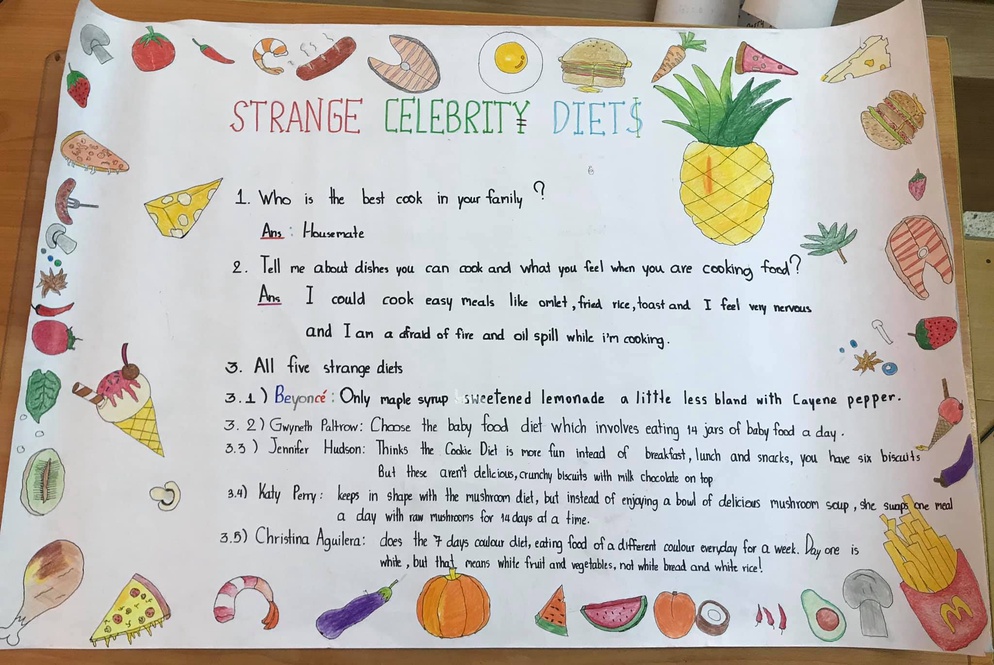 STRANGE CELEBRITY DIET$
1. Who is the best cook in your family?
Ans : Housemate
2. Tell me about dishes you can cook and what you feel when you are cooking food?
Ans I could cook easy meals like omlet, fried rice, toast and I feel very nervous
and I am a afraid of fire and oil spill while i'm cooking.
3. All five strange diets
3.1) Beyoncé : Only maple syrup sweetened lemonade a little less bland with Cayene pepper.
3.2) Gwyneth Paltrow: Choose the baby food diet which involves eating 14 jars of baby food a day.
3.3) Jennifer Hudson: Thinks the Cookie Diet is more fun intead of breakfast, lunch and snacks, you have six biscuits
But these aren't delicious, crunchy biscuits with milk chocolate on top
3.4) Katy Perry: keeps in shape with the mushroom diet, but instead of enjoying a bowl of delicious mushroom soup, she swaps one meal
a day with raw mushrooms for 14 days at a time.
3.5) Christina Aguilera: does the 7 days coulour diet, eating food of a different coulour everyday for a week. Day one is
white, but that means white fruit and vegetables, not white bread and white rice!